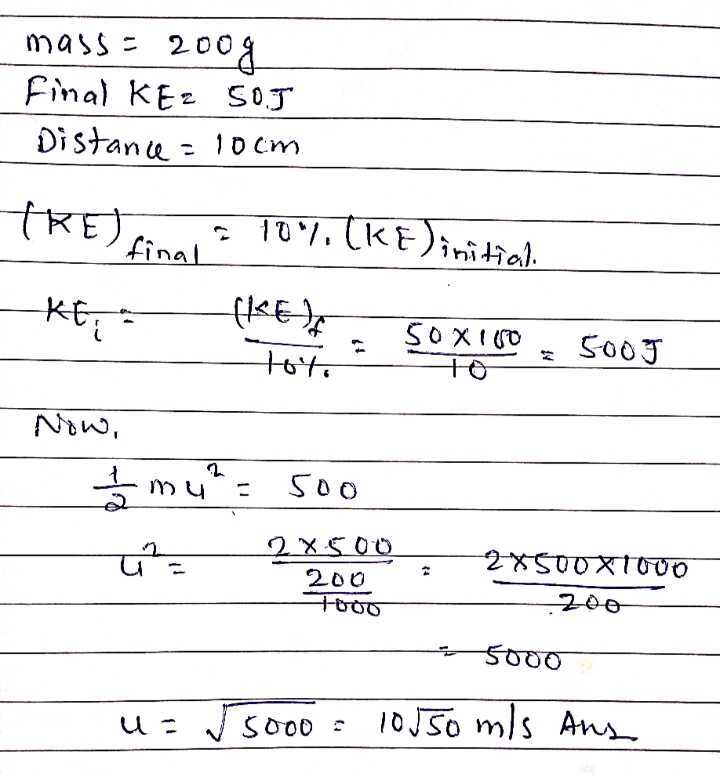 mass = 200g
Final KE = 50J
Distance = 10cm
(KE)final = 10%. (KE)initial.
KEi = (KE)f / 10%. = 50×100 / 10 = 500J
Now,
1/2 mu² = 500
u² = 2×500 / (200/1000) = 2×500×1000 / 200
= 5000
u = √5000 = 10√50 m/s Ans